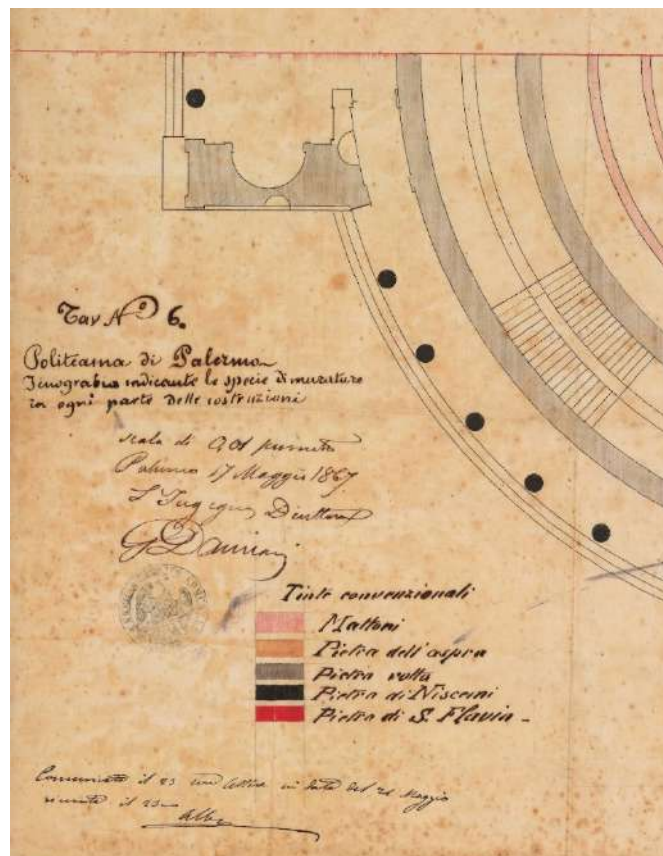 Tav N.º 6.
Politeama di Palermo
Icnografia indicante le specie di murature
in ogni parte delle costruzioni
scala di 0,01 per metro
Palermo 17 Maggio 1867
L'Ingegnere Direttore
G Damiani
Tinte convenzionali
Mattoni
Pietra dell'aspra
Pietra rotta
Pietra di Niscemi
Pietra di S. Flavia -
il 23 in data del 21 Maggio
il 23